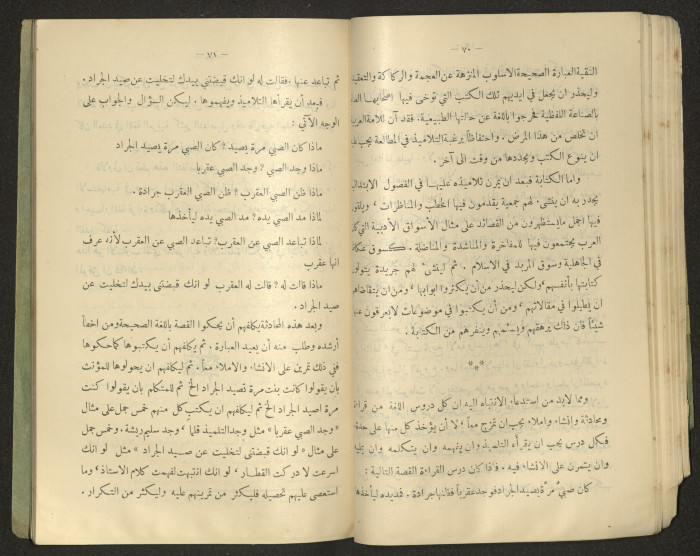 — ٧٠ —
النقية العبارة الصحيحة الاسلوب المنزهة عن العجمة والركاكة والتعقيد
وليحذر ان يجعل في ايديهم تلك الكتب التي توخى فيها اصحابها
بالصناعة اللفظية فخرجوا باللغة عن حالتها الطبيعية. فقد آن للامة العربية
ان تخلص من هذا المرض. واحتفاظاً برغبة التلاميذ في المطالعة يجب
ان ينوع الكتب ويجددها من وقت الى آخر.
واما الكتابة فبعد ان يمرن تلاميذه عليها في الفصول
يجدر به ان ينشئ لهم جمعية يقدمون فيها الخطب والمناظرات، ويلقون
فيها اجمل ما يستظهرون من القصائد على مثال الأسواق الأدبية التي
العرب يجتمعون فيها للمفاخرة والمناشدة والمناضلة. كسوق عكاظ
في الجاهلية وسوق المربد في الاسلام. ثم لينشئ لهم جريدة يتولون
كتابتها بأنفسهم، ولكن ليحذر من أن يكثروا ابوابها، ومن ان يتقاضاهم
ان يطيلوا في مقالاتهم، ومن أن يكتبوا في موضوعات لا يعرفون عنها
شيئاً فان ذلك يرهقهم وينفرهم من الكتابة.
***
ومما لابد من استدعاء الانتباه اليه ان كل دروس اللغة من قراءة
ومحادثة وانشاء واملاء يجب ان تمزج معاً، لا أن يؤخذ كل منها على حدة
فكل درس يجب ان يقرأه التلميذ وان يفهمه وان يتكلمه وان
وان يتمرن على الانشاء فيه. فاذا كان درس القراءة القصة التالية:
كان صبيٌّ مرَّة يصيد الجراد فوجد عقرباً فظنها جرادة. فمد يده ليأخذها
— ٧١ —
ثم تباعد عنها. فقالت له لو انك قبضتني بيدك لتخليت عن صيد الجراد.
فبعد أن يقرأها التلاميذ ويفهموها. ليكن السؤال والجواب على
الوجه الآتي:
ماذا كان الصبي مرة يصيد؟ كان الصبي مرة يصيد الجراد
ماذا وجد الصبي؟ وجد الصبي عقربا.
ماذا ظن الصبي العقرب؟ ظن الصبي العقرب جرادة.
لماذا مد الصبي يده؟ مد الصبي يده ليأخذها
لماذا تباعد الصبي عن العقرب؟ تباعد الصبي عن العقرب لأنه عرف
انها عقرب
ماذا قالت له؟ قالت له العقرب لو انك قبضتني بيدك لتخليت عن
صيد الجراد.
وبعد هذه المحادثة يكلفهم أن يحكوا القصة باللغة الصحيحة ومن اخطأ
أرشده وطلب منه أن يعيد العبارة. ثم يكلفهم ان يكتبوها كما حكوها
ففي ذلك تمرين على الانشاء والاملاء معاً. ثم ليكلفهم ان يحولوها للمؤنث
بان يقولوا كانت بنت مرة تصيد الجراد الخ ثم للمتكلم بان يقولوا كنت
مرة اصيد الجراد الخ ثم ليكلفهم ان يكتب كل منهم خمس جمل على مثال
«وجد الصبي عقربا» مثل وجد التلميذ قلما، وجد سليم ريشة. وخمس جمل
على مثال «لو انك قبضتني لتخليت عن صيد الجراد» مثل لو انك
اسرعت لادركت القطار، لو انك انتبهت لفهمت كلام الاستاذ، وما
استعصى عليهم تحصيله فليكثر من تمرينهم عليه وليكثر من التكرار.